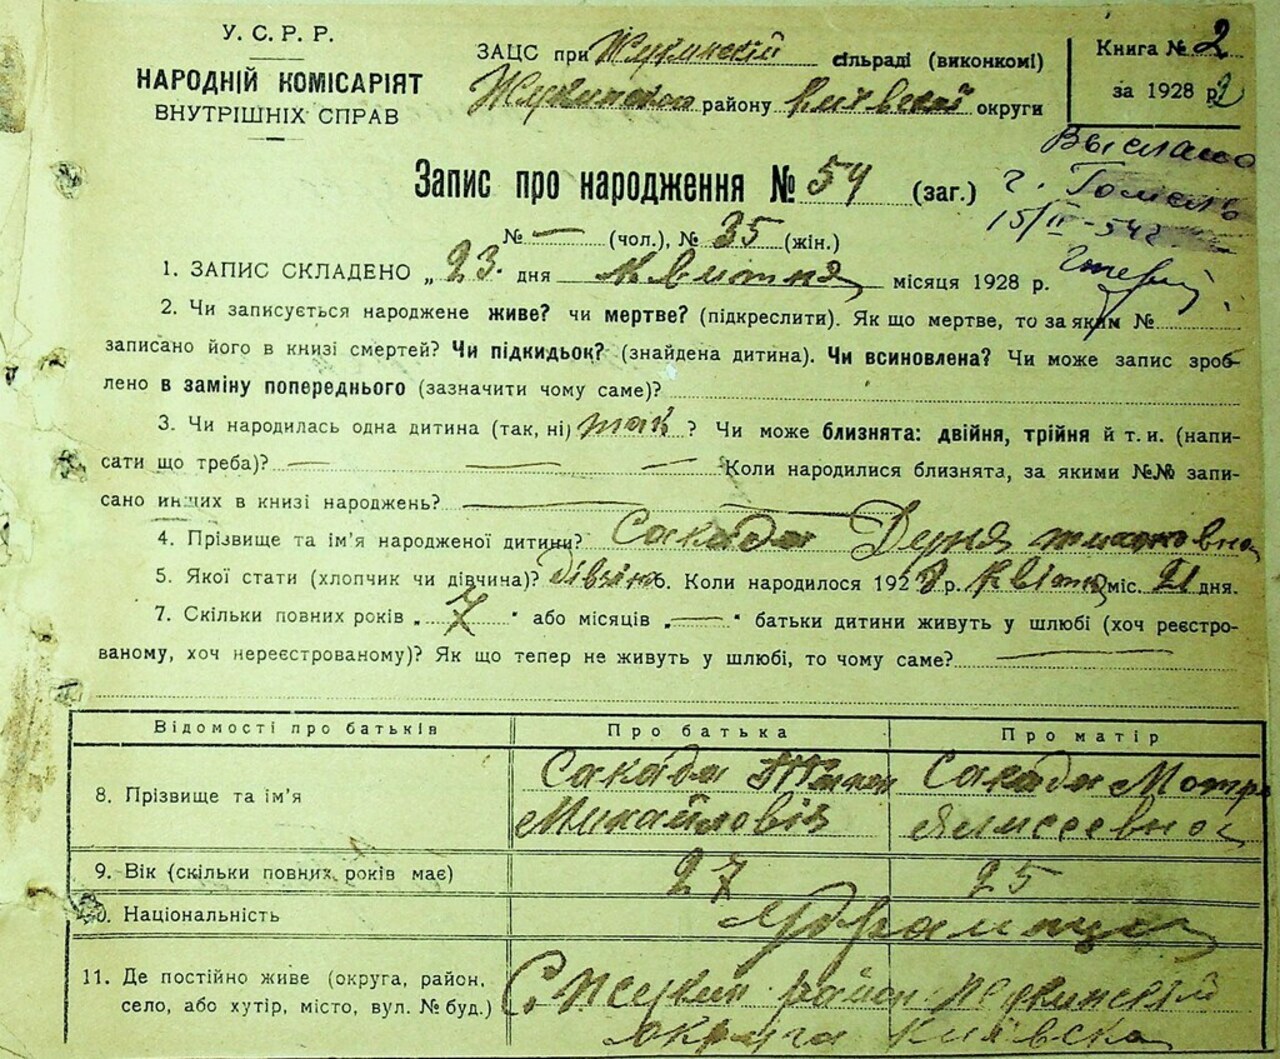 У. С. Р. Р.
НАРОДНІЙ КОМІСАРІЯТ
ВНУТРІШНІХ СПРАВ
ЗАЦС при Жукинскій сільраді (виконкомі)
Жукинського району Київської округи
Книга № 2
за 1928 р. 2
Выслано
г. Гомель
15/II-54г
Запис про народження № 54 (заг.)
№ — (чол.), № 35 (жін.)
1. ЗАПИС СКЛАДЕНО „ 23 дня Квітня місяця 1928 р.
2. Чи записується народжене живе? чи мертве? (підкреслити). Як що мертве, то за яким №
записано його в книзі смертей? Чи підкидьок? (знайдена дитина). Чи всиновлена? Чи може запис зроб-
лено в заміну попереднього (зазначити чому саме)?
3. Чи народилась одна дитина (так, ні) так ? Чи може близнята: двійня, трійня й т. и. (напи-
сати що треба)? — — — Коли народилися близнята, за якими №№ запи-
сано инших в книзі народжень? —
4. Прізвище та ім'я народженої дитини? Сакада
5. Якої стати (хлопчик чи дівчина)? дівчин 6. Коли народилося 1928 р. Квітня міс. 21 дня.
7. Скільки повних років „ 7 " або місяців „ — " батьки дитини живуть у шлюбі (хоч реєстро-
ваному, хоч нереєстрованому)? Як що тепер не живуть у шлюбі, то чому саме? —
Відомості про батьків Про батька Про матір
8. Прізвище та ім'я Сакада Сакада Мотря
Михайловіч
9. Вік (скільки повних років має) 27 25
10. Національність Українці
11. Де постійно живе (округа, район, С. Жукин район Жукинский
село, або хутір, місто, вул. № буд.) округа Київска